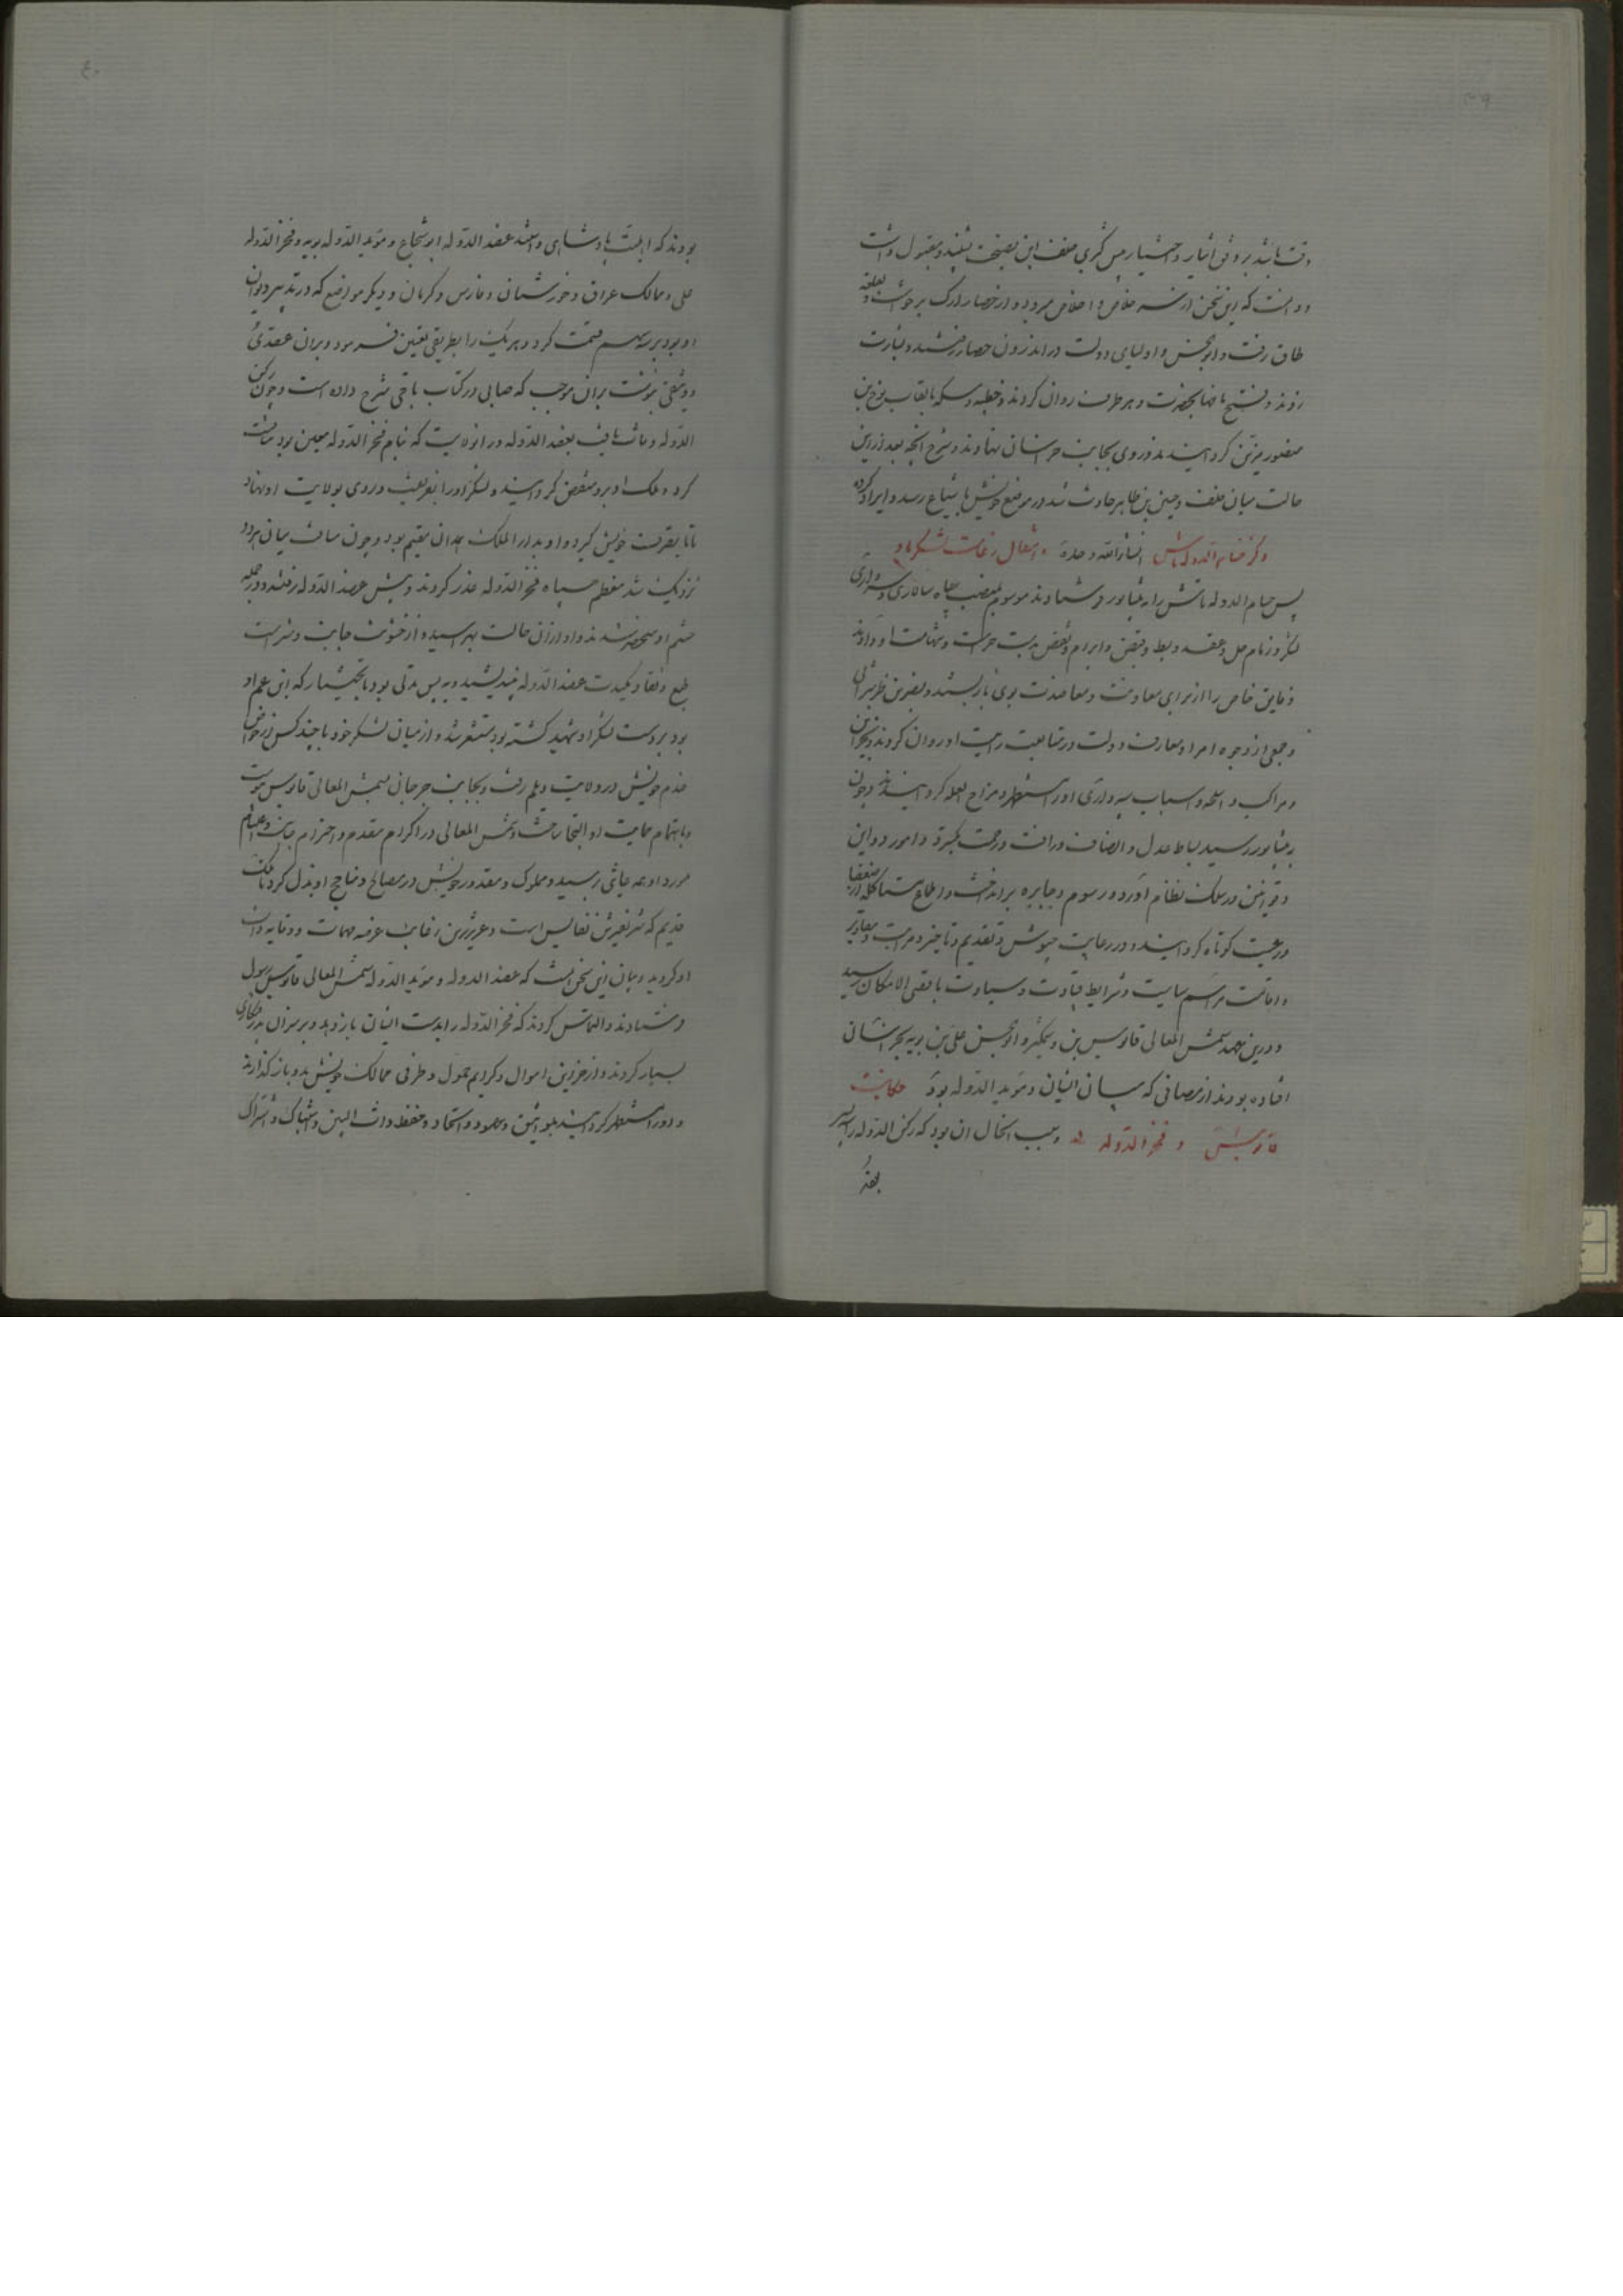 وقت باشد بر وفق ایثار و اختیار پس گیری خلف این نصیحت بشنید و مقبول داشت
و دانست که این سخن از سر خلاص و اخلاص میرود و از حصار ارک برخاست و بقلعه
طاق رفت و ابو الحسن و اولیای دولت در اندرون حصار رفتند و بشارت
زدند و فتح نامها بحضرت و هر طرف روان کردند و خطبه و سکه بالقاب نوح بن
منصور مزین کردانیدند و روی بجانب خراسان نهادند و شرح انچه بعد ازین
حالت میان خلف و حسین بن طاهر حادث شد در موضع خویش باشباع رسد و ایراد کرده
انشاء الله وحده
ذکر حسام الدوله تاش و انتقال زعامت لشکر باو
پس حسام الدوله تاش را به نیشابور فرستادند موسوم بمنصب سپاه سالاری و سرداری
لشکر و زمام حل و عقد و بسط و قبض و ابرام و نقض بدست حراست و شهامت او دادند
و فایق خاص را از برای معاونت و معاضدت بوی باز بستند و نصر بن
و جمعی از وجوه امرا و معارف دولت در متابعت رایت او روان کردند و بخزاین
و مراکب و اسلحه و اسباب سپه داری او را مستظهر و مزاح العله کردانیدند و چون
به نیشابور رسید بساط عدل و انصاف و رافت و رحمت بگسترد و امور دواوین
و قوانین در سلک نظام آورد و رسوم جبابره برانداخت و اطماع ستم از ضعفا
و رعیت کوتاه کردانید و در رعایت جیوش و تقدیم و تاخیر و مراتب و مقادیر
و اقامت مراسم سیاست و شرایط قیادت و سیادت باقصی الامکان رسید
و درین عهد شمس المعالی قابوس بن وشمگیر و ابو الحسن علی بن بویه بخراسان
افتاده بودند از مصافی که میان ایشان و موید الدوله بود حکایت
قابوس و فخر الدوله و سبب انحال ان بود که رکن الدوله را سه پسر
بودند
بودند که اهلیت پادشاهی داشتند عضد الدوله ابو شجاع و موید الدوله بویه و فخر الدوله
علی و ممالک عراق و خورستان و فارس و کرمان و دیگر مواضع که در تدبیر دیوان
او بود بر سه سهم قسمت کرد و هر یک را بطریقی تعیین فرمود و بران عقدی
و وثیقتی بنوشت بران موجب که صابی در کتاب تاجی شرح داده است و چون رکن
الدوله وفات یافت عضد الدوله در ان ولایت که بنام فخر الدوله معین بود منافست
کرد و ملک او برو منغص کردانید و لشکر او را بفریفت و روی بولایت او نهاد
تا بتصرف خویش گیرد و او بدار الملک همدان مقیم بود و چون مسافت میان هر دو
نزدیک شد معظم سپاه فخر الدوله غدر کردند و پیش عضد الدوله رفتند و در جمله
حشم او منحصر شدند و او ازان حالت بترسید و از خشونت جانب و شراست
طبع و نفاذ مکیدت عضد الدوله بیندیشید و به پس مدتی بود با بختیار که ابن عم او
بود بر دست لشکر او شهید گشته بود مستشعر شد و از میان لشکر خود با چند کس از خواص
خدم خویش در ولایت دیلم رفت و بجانب جرجان بشمس المعالی قابوس پیوست
و باهتمام حمایت او التجا ساخت و شمس المعالی در اکرام مقدم و احترام جانب و اغتنام
مورد او همه غایتی برسید و مملوک و مقدور خویش در مصالح و مناجح او بذل کرد تا ملک
قدیم که شریفترین نفایس است و عزیزترین رغایب عرضه مهمات و وقایه ذات
او گردید و بیان این سخن انست که عضد الدوله و موید الدوله بشمس المعالی قابوس رسول
فرستادند و التماس کردند که فخر الدوله را بدست ایشان باز دهد و بر سران
بسیار کردند و از خزاین اموال و کرایم حمول و طرفی ممالک خویش بدو باز گذارند
و او را مستظهر کردانید بمواثیق و عهود و اتحاد و حفظ ذات البین و اشتباک و اشتراک